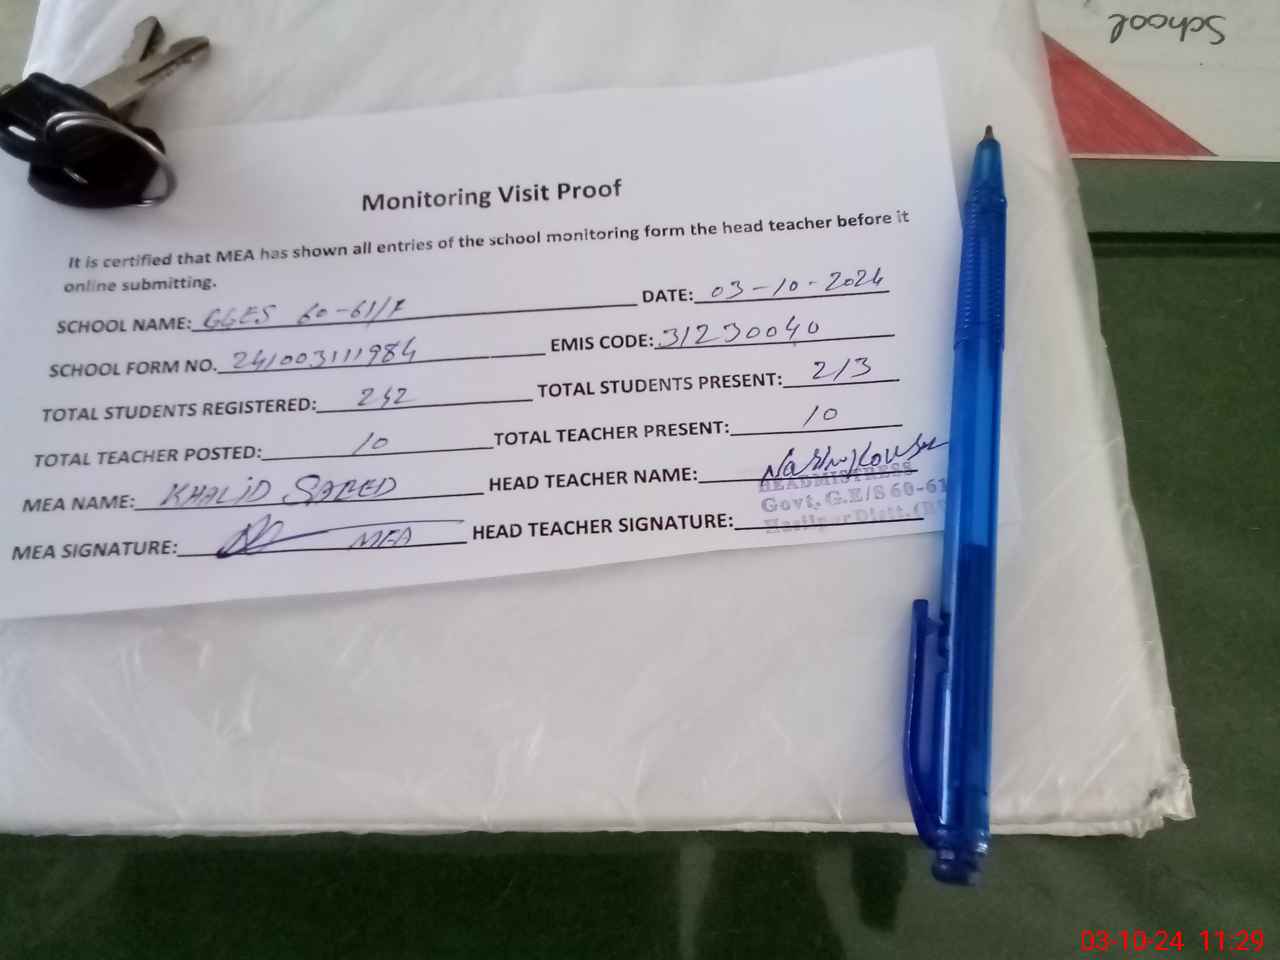 School
Monitoring Visit Proof
It is certified that MEA has shown all entries of the school monitoring form the head teacher before it
online submitting.
SCHOOL NAME: GGES 60-61/F DATE: 03-10-2024
SCHOOL FORM NO. 241003111984 EMIS CODE: 31230040
TOTAL STUDENTS REGISTERED: 242 TOTAL STUDENTS PRESENT: 213
TOTAL TEACHER POSTED: 10 TOTAL TEACHER PRESENT: 10
MEA NAME: KHALID SAEED HEAD TEACHER NAME: Nasim Kousar
MEA SIGNATURE: MEA HEAD TEACHER SIGNATURE:
HEADMISTRESS
Govt. G.E/S 60-61
Hasilpur Distt.
03-10-24 11:29